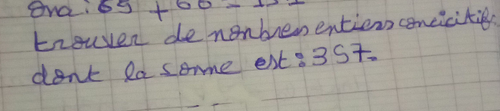 Ona : 65 + 66 = 131
trouver de nonbres entiers concicitifs
dont la somme est : 357.